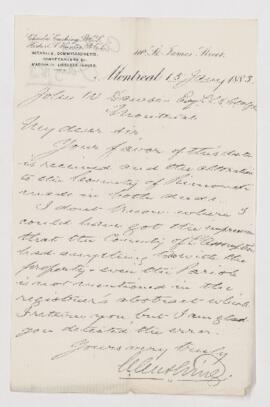 Charles Cushing, B.C.L.
NOTARIES, COMMISSIONERS,
MARRIAGE LICENSE ISSUERS.
110 St. James Street,
Montreal 15 Jany 1883
John W. Dawson Esq
Montreal
My dear Sir
Your favor of this date
is received and the alteration
to the County of
made in both deeds.
I don't know where I
could have got the impression
that the County of
had anything to do with the
property - even the Parish
is not mentioned in the
registrar's abstract which
I return you but I am glad
you detected the error.
Yours very truly
C. Cushing